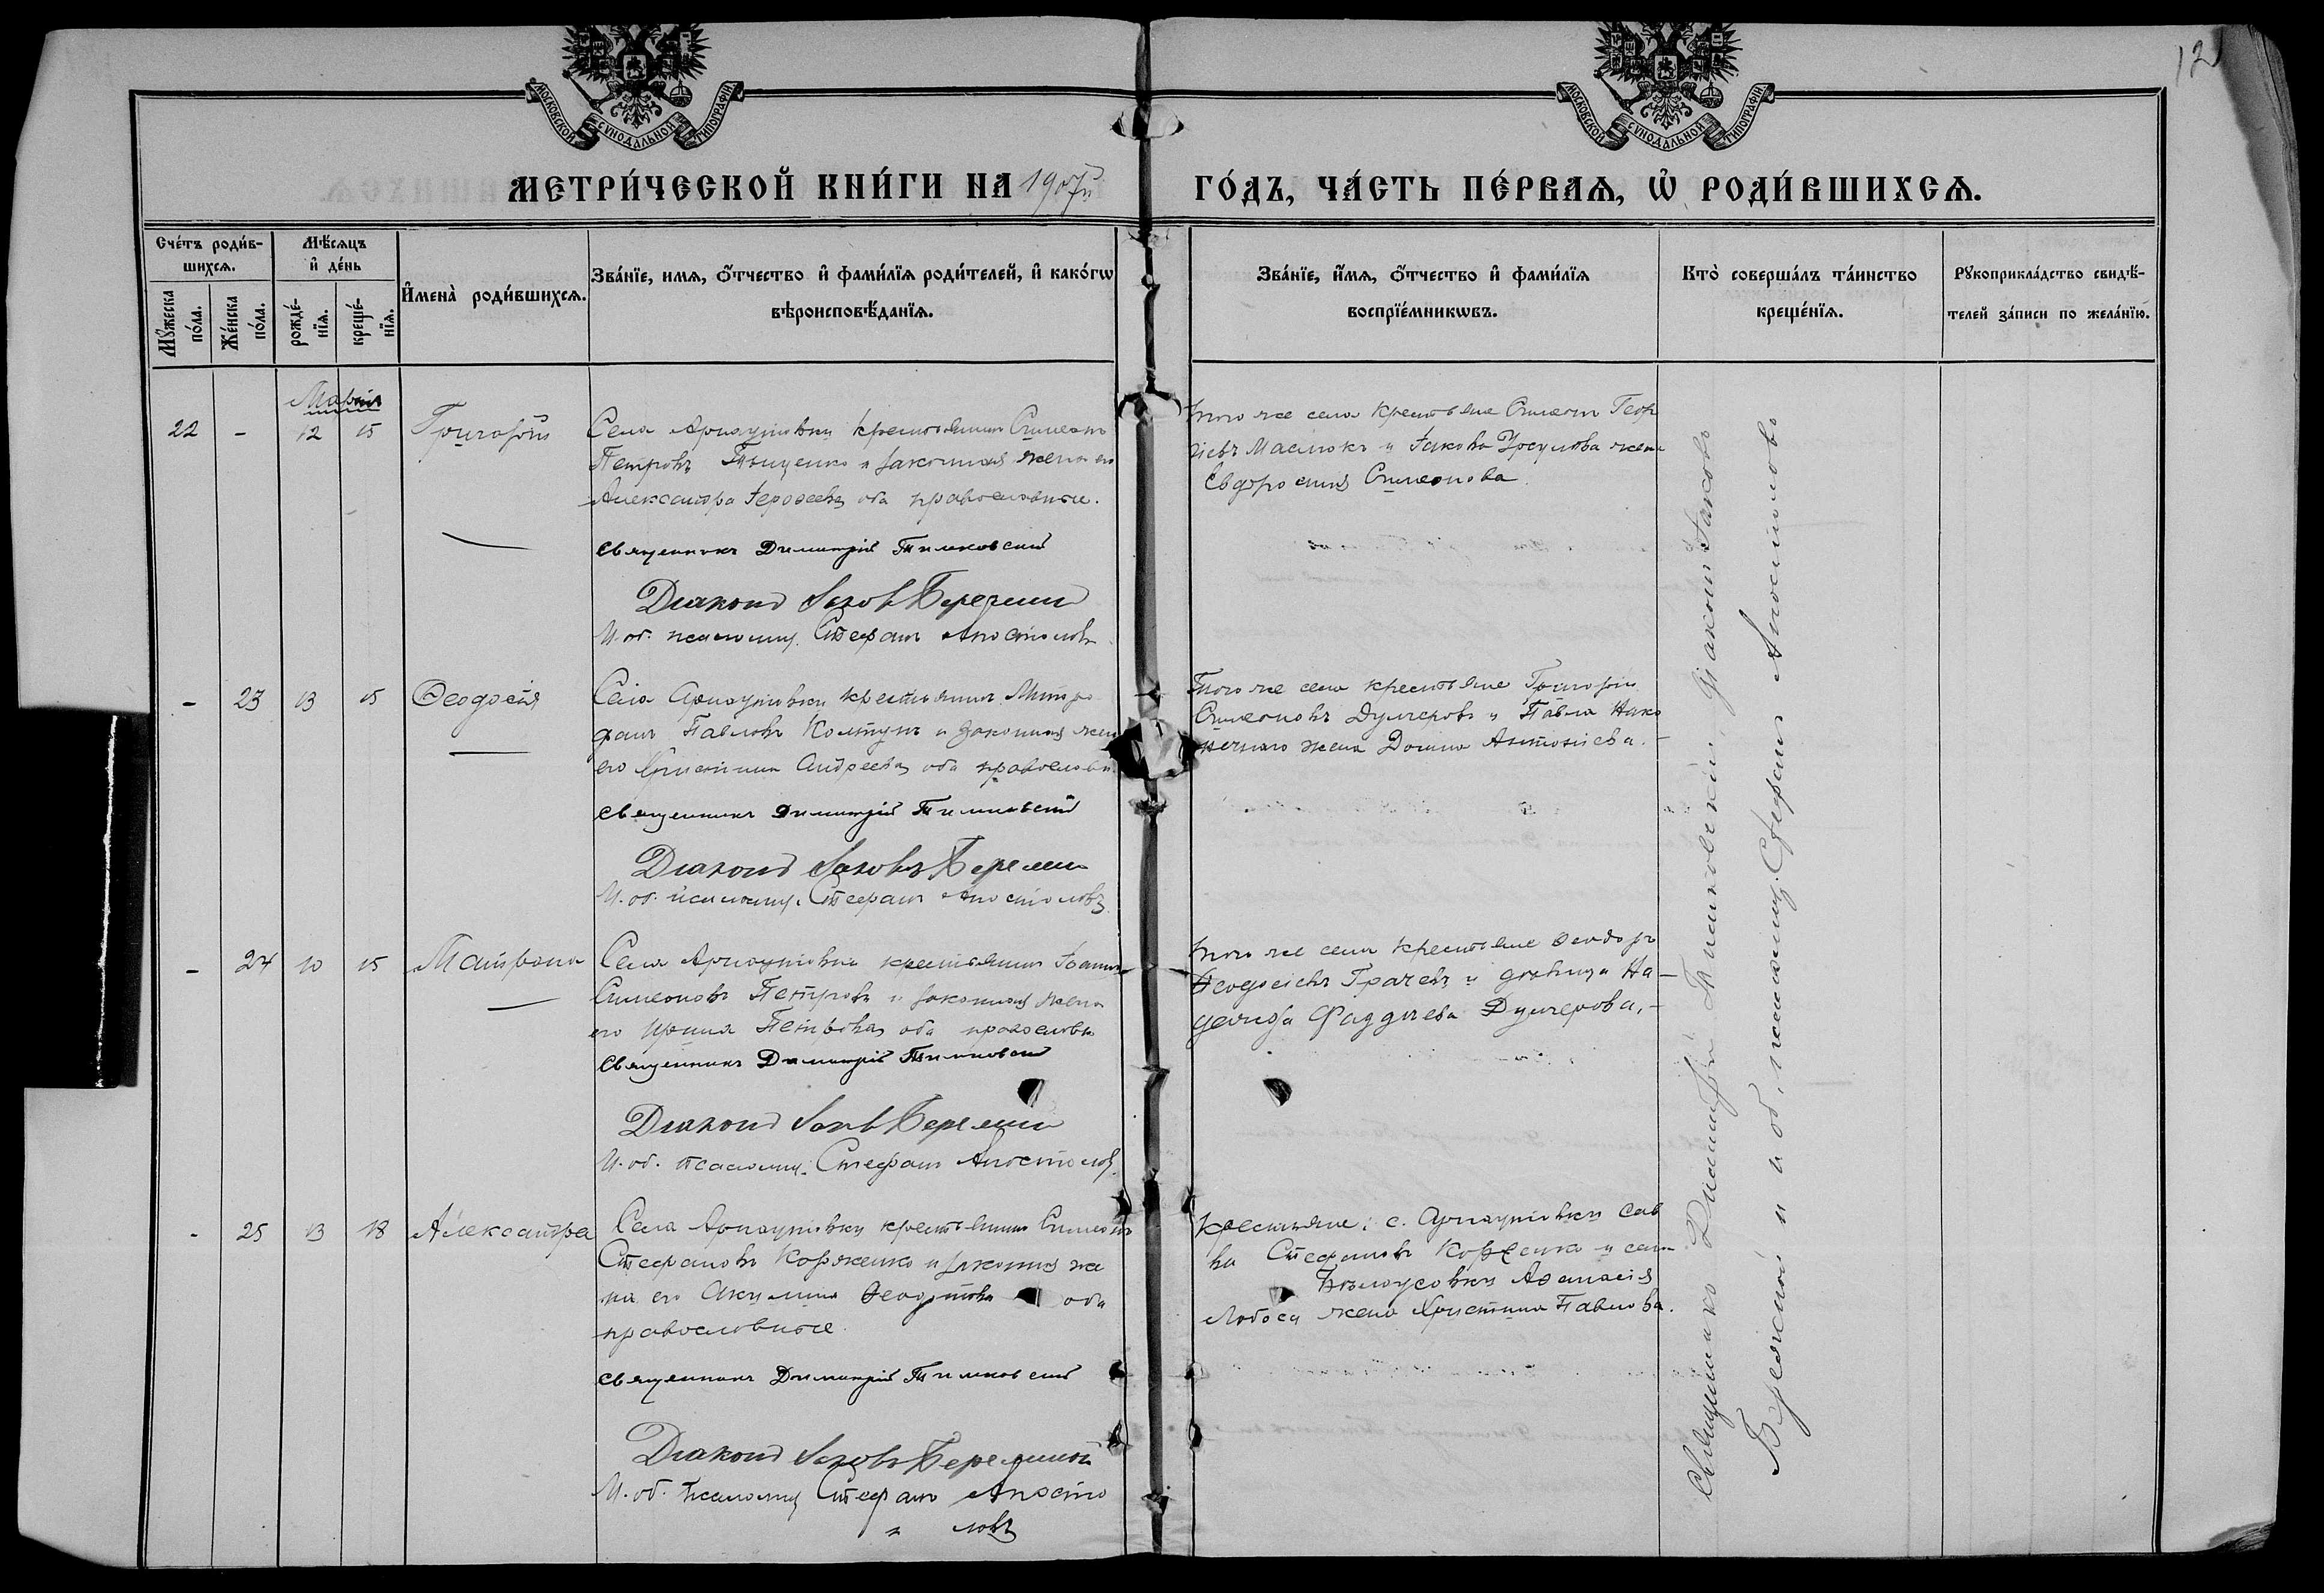 12
МОСКОВСКОЙ СѴНОДАЛЬНОЙ ТИПОГРАФІИ
МОСКОВСКОЙ СѴНОДАЛЬНОЙ ТИПОГРАФІИ
МЕТРИ́ЧЕСКОЙ КНИ́ГИ НА 1907й ГО́ДЪ, ЧА́СТЬ ПЕ́РВАѦ, Ѡ҆ РОДИ́ВШИХСѦ.
Сче́тъ роди́в-
шихсѧ.
Мꙋ́жеска по́ла.
Же́нска по́ла.
Мѣ́сѧцъ
и҆ де́нь
рожде́-
нїѧ.
креще́-
нїѧ.
И҆мена̀ роди́вшихсѧ.
Зва́нїе, имѧ, ѻ҆́тчество и҆ фами́лїѧ роди́телей, и҆ како́гѡ
вѣроисповѣ́данїѧ.
Зва́нїе, и҆́мѧ, ѻ҆́тчество и҆ фами́лїѧ
воспрїе́мникѡвъ.
Кто̀ соверша́лъ та́инство
креще́нїѧ.
Рꙋкоприкла́дство свидѣ́-
телей за́писи по жела́нїю.
Мартъ
22 - 12 15 Григорій
Села Арнаутовки крестьянинъ Симеонъ
Петровъ Тыщенко и законная жена его
Александра Іерофеева, оба православные.
Священникъ Димитрій Тимковскій
Діаконъ Іаковъ Бережний
И. об. псаломщ. Стефанъ Апостоловъ
того же села крестьяне Симеонъ Геор
гіевъ Масюкъ и Іакова Урсулова жена
Евфросинія Симеонова.
- 23 13 15 Ѳеодосія
Села Арнаутовки крестьянинъ Митро
фанъ Павловъ Колтунъ и законная жена
его Христина Андреева, оба православн.
Священникъ Димитрій Тимковскій
Діаконъ Іаковъ Бережний
И. об. псаломщ. Стефанъ Апостоловъ
Того же села крестьяне Григорій
Симеоновъ Думчеровъ и Павла
жена Домна Антоніева.
- 24 10 15 Матрона
Села Арнаутовки крестьянинъ Іоаннъ
Симеоновъ Петровъ и законная жена
его Ирина Петрова, оба православн
Священникъ Димитрій Тимковскій
Діаконъ Іаковъ Бережний
И. об. псаломщ. Стефанъ Апостоловъ
того же села крестьяне Ѳеодоръ
Ѳеодосіевъ Грачевъ и дѣвица На-
дежда Фаддѣева Думчерова.
- 25 13 18 Александра
Села Арнаутовки крестьянинъ Симеонъ
Стефановъ Корженко и законная же
на его Акулина оба
православные.
Священникъ Димитрій Тимковскій
Діаконъ Іаковъ Бережний
И. об. псаломщ Стефанъ Апосто
ловъ
Крестьяне: с. Арнаутовки Сав
ва Стефановъ Корженко и села
Бѣлоусовки Аѳанасія
Лобоса жена Христина Павлова.
Священникъ Димитрій Тимковскій, діаконъ Іаковъ
Бережной и и. об. псаломщ. Стефанъ Апостоловъ